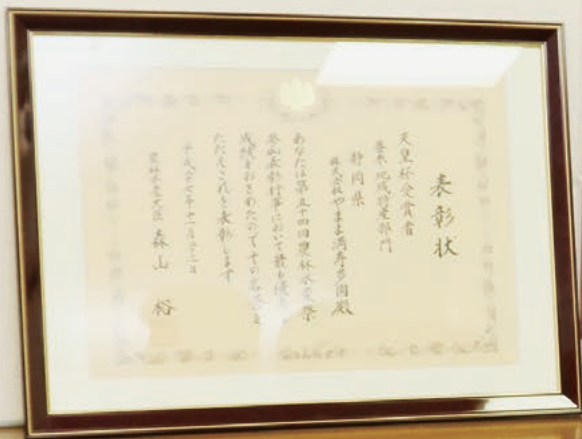 表彰状
天皇杯受賞者
蚕糸・地域特産部門
静岡県
株式会社やまま満寿多園殿
あなたは第五十四回農林水産祭
参加表彰行事において最も優秀な
成績をおさめたのでその名誉を
たたえこれを表彰します
平成二十七年十一月二十三日
農林水産大臣 森山 裕